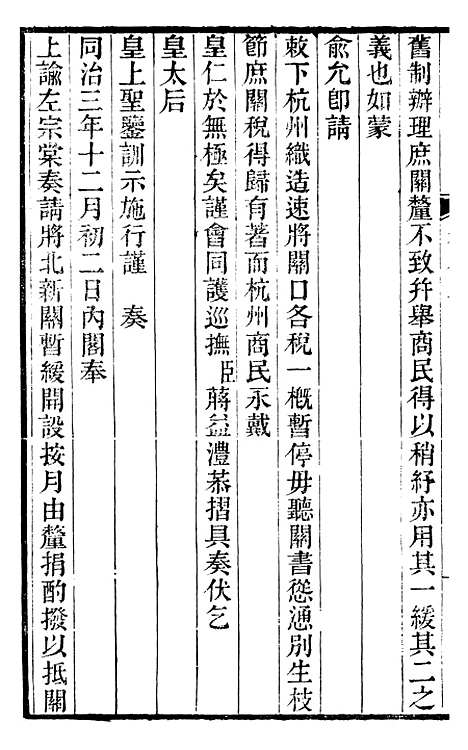 舊制辦理庶關釐不致幷舉商民得以稍紓亦用其一緩其二之
義也如蒙
俞允卽請
敕下杭州織造速將關口各稅一概暫停毋聽關書慫湧別生枝
節庶關稅得歸有著而杭州商民永戴
皇仁於無極矣謹會同護巡撫臣蔣益澧恭摺具奏伏乞
皇太后
皇上聖鑒訓示施行謹　奏
同治三年十二月初二日內閣奉
上諭左宗棠奏請將北新關暫緩開設按月由釐捐酌撥以抵關